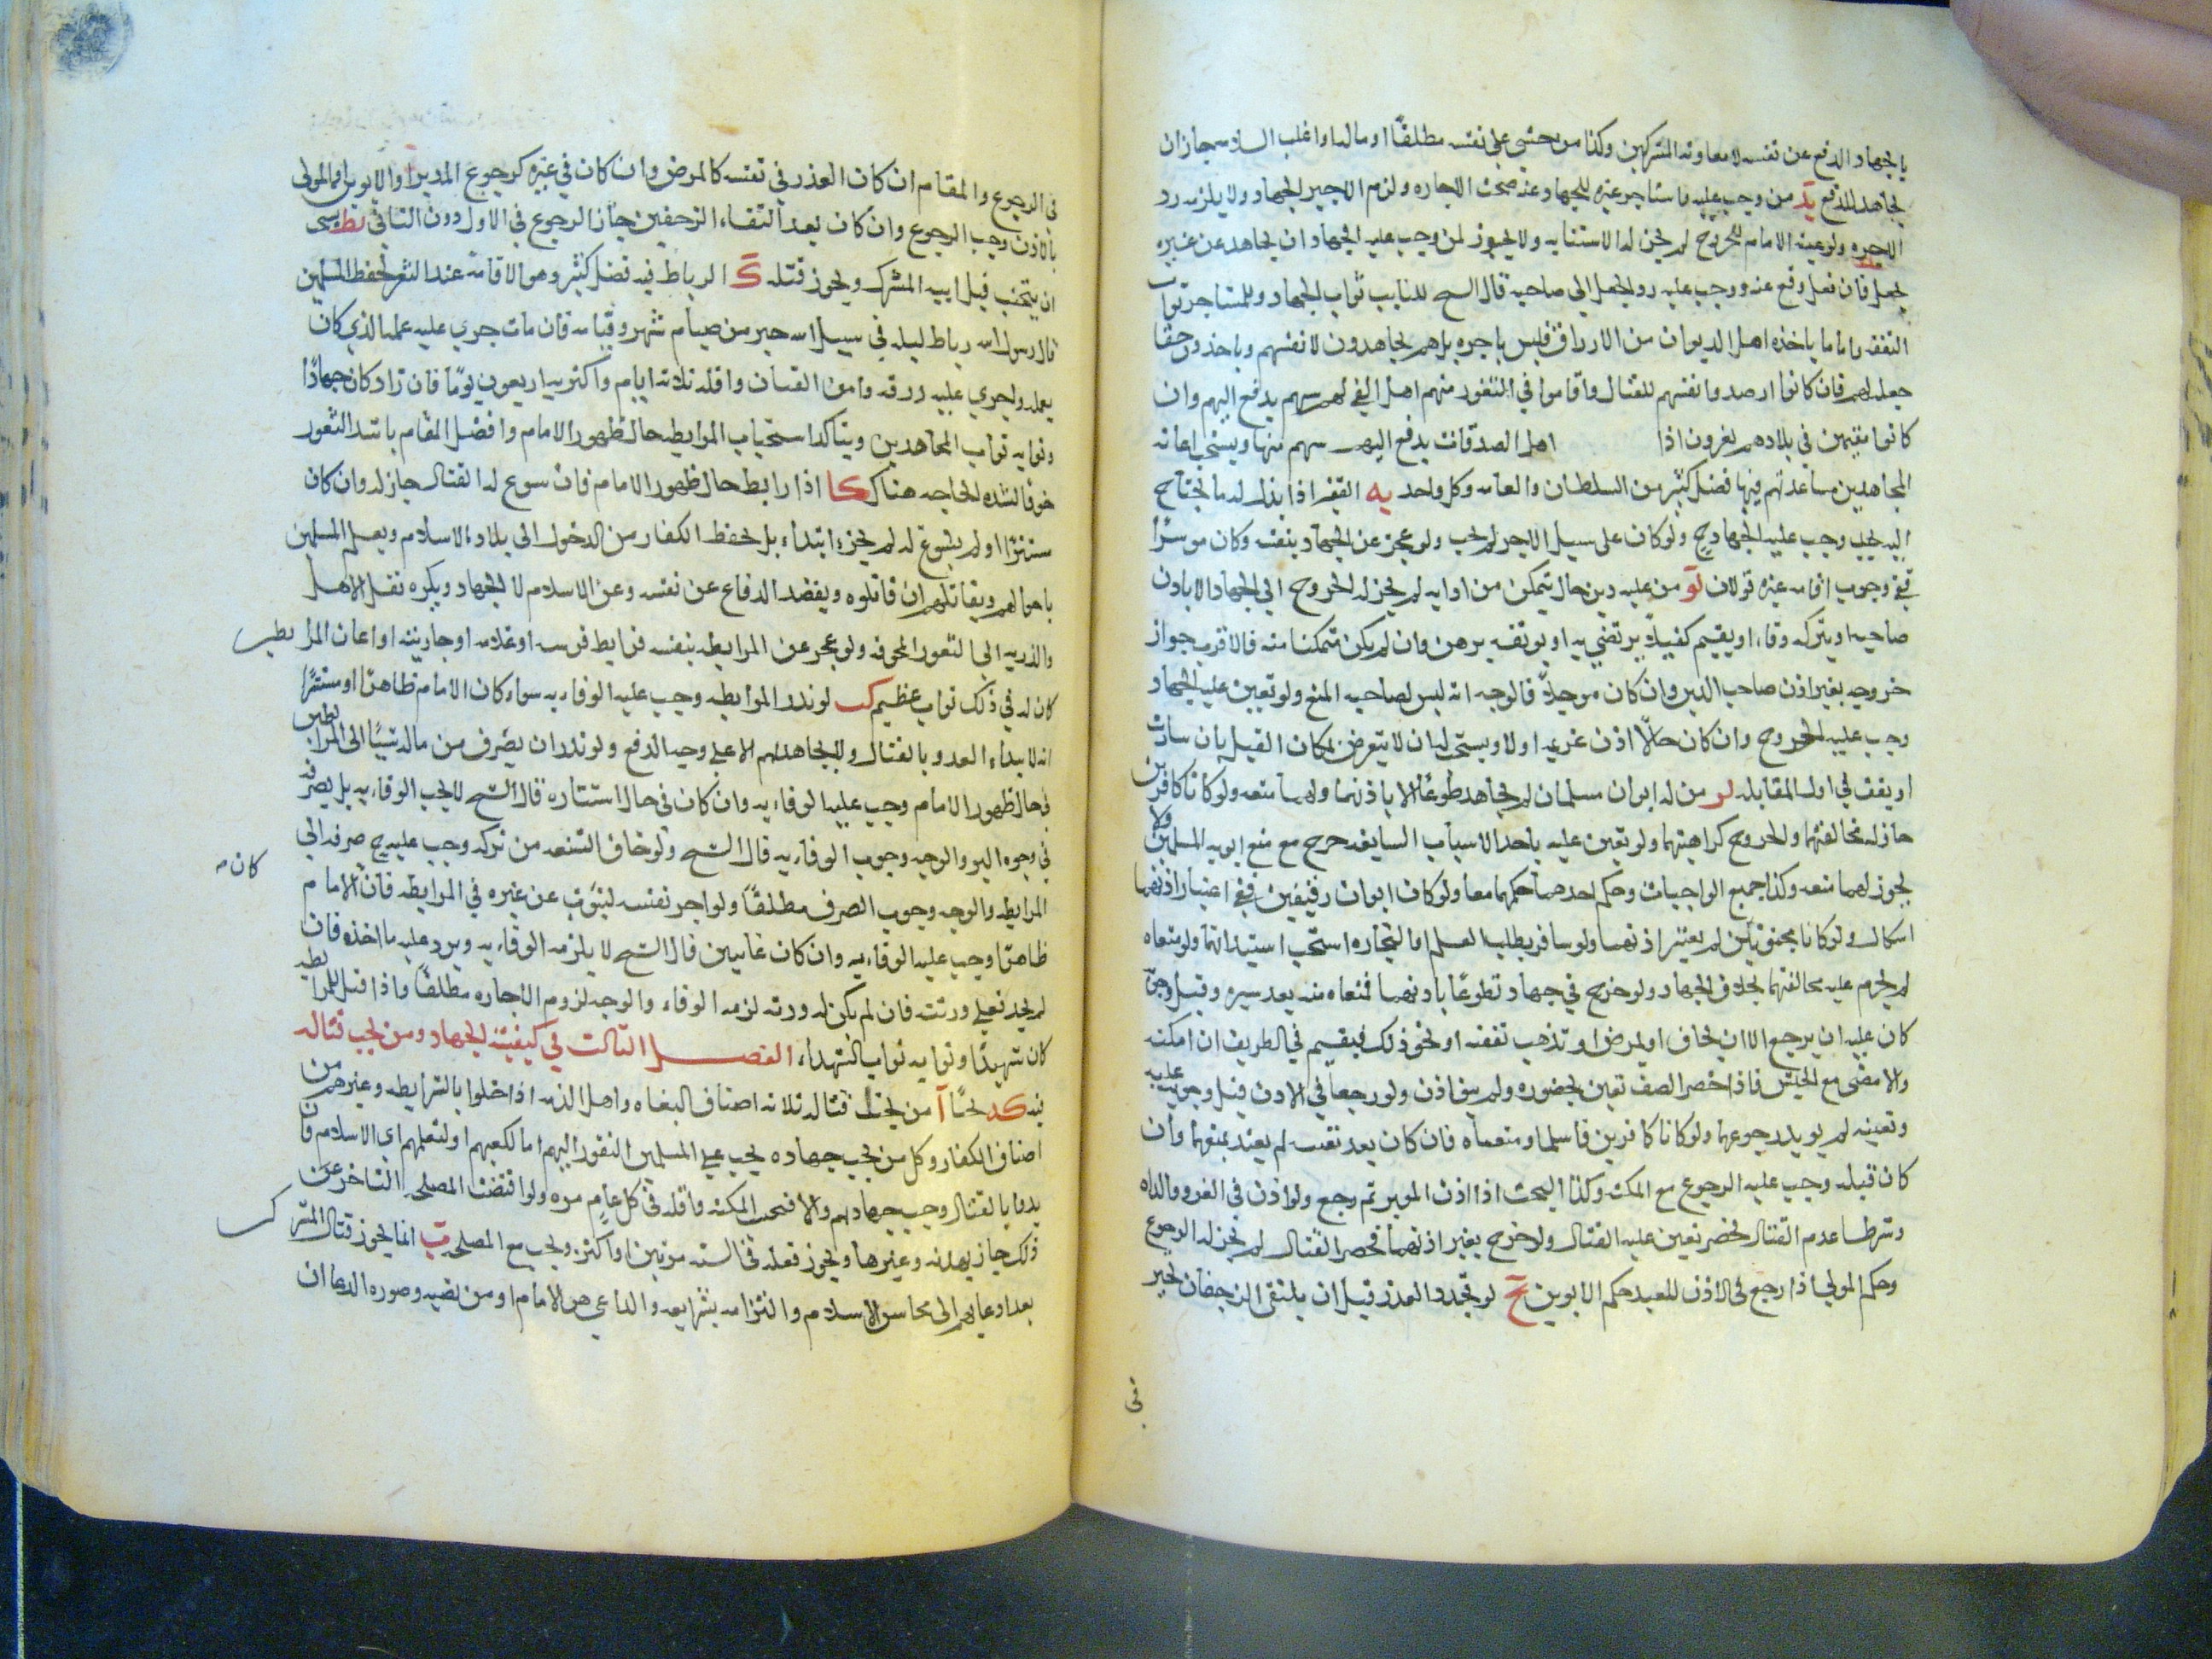 بالجهاد الدفع عن نفسه لا معاونه المشركين وكذا من خشي على نفسه مطلقًا او ماله اذا غلب السلامه جاز ان
يجاهد للدفع يد من وجب عليه فاستاجر غيره للجهاد عنه صحت الاجاره ولزم الاجير الجهاد ولا يلزمه رد
الاجره ولو عينه الامام للخروج لم يجز له الاستنابه ولا يجوز لمن وجب عليه الجهاد ان يجاهد عن غيره
بجعل فان فعل وقع عنه ووجب عليه رد الجعل الى صاحبه قال الشيخ للنايب ثواب الجهاد وللمستاجر ثواب
النفقه واما ما ياخذه اهل الديوان من الارزاق فليس باجره بل هم يجاهدون لانفسهم وياخذون حقا
جعل لهم فان كانوا ارصدوا انفسهم للقتال واقاموا في الثغور فهم اهل الفي لهم سهم يدفع اليهم وان
كانوا مقيمين في بلادهم يغزون اذا اهل الصدقات يدفع اليهم سهم منها ويستحب اعانه
المجاهدين مساعدتهم فيها فضل كثير من السلطان والعامه وكل واحد يه الفقير اذا بذل له ما يحتاج
اليه يجب وجب عليه الجهاد ح ولو كان على سبيل الاجر لم يجب ولو عجز عن الجهاد بنفسه وكان موسرًا
ففي وجوب اقامه غيره قولان يو من عليه دين حال يتمكن من ادايه لم يجز له الخروج الى الجهاد الا باذن
صاحبه او يترك وفاء او يقيم كفيلًا يرتضي به او يوثقه برهن وان لم يكن متمكنا منه فالاقرب جواز
خروجه بغير اذن صاحب الدين وان كان موجلًا فالوجه انه ليس لصاحبه المنع ولو تعين عليه الجهاد
وجب عليه الخروج وان كان حالًا اذن غريمه اولا ويستحب له ان لا يتعرض لمكان القتل بان يبارز
او يقف في اول المقابله يز من له ابوان مسلمان لم يجاهد طوعًا الا باذنهما ولهما منعه ولو كانا كافرين
جاز له مخالفتهما والخروج مع كراهيتهما ولو تعين عليه باحد الاسباب السابقه خرج مع منع ابويه المسلمين ولا
يجوز لهما منعه وكذا جميع الواجبات وحكم احدهما حكمهما معا ولو كان ابوان رقيقين ففي اعتبار اذنهما
اشكال ولو كانا مجنونين لم يعتبر اذنهما ولو سافر لطلب العلم او التجاره استحب استيذانهما ولو منعاه
لم يحرم عليه مخالفتهما بخلاف الجهاد ولو خرج في جهاد تطوعًا باذنهما فمنعاه منه بعد سيره وقبل وجوبه
كان عليه ان يرجع الا ان يخاف او يمرض او تذهب نفقته او نحو ذلك فيقيم في الطريق ان امكنه
والا مضى مع الجيش فاذا حضر الصف تعين بحضوره ولم يبق اذن ولو رجعا في الاذن قبل وجوبه عليه
وتعينه لم يوثر رجوعهما ولو كانا كافرين فاسلما ومنعاه فان كان بعد تعينه لم يعتد بمنعهما وان
كان قبله وجب عليه الرجوع مع المكنه وكذا البحث اذا اذن الموير ثم رجع ولو اذن في الغزو والداه
وشرطا عدم القتال فحضر تعين عليه القتال ولو خرج بغير اذنهما فحضر القتال لم يجز له الرجوع
وحكم المولى اذا رجع في الاذن للعبد حكم الابوين يح لو تجدد العذر قبل ان يلتقى الزحفان تخير
في
في الرجوع والمقام ان كان العذر في نفسه كالمرض وان كان في غيره كرجوع المدين او الابوين او المولى
بالاذن وجب الرجوع وان كان بعد التقاء الزحفين جاز الرجوع في الاول دون الثاني يط ينبغي
ان يتجنب قتل ابيه المشرك ويجوز قتله ك الرباط فيه فضل كثير وهو الاقامه عند الثغر لحفظ المسلمين
قال رسول الله رباط ليله في سبيل الله خير من صيام شهر وقيامه فان مات جرى عليه عمله الذي كان
يعمل واجري عليه رزقه وامن الفتان واقله ثلاثه ايام واكثره اربعون يومًا فان زاد كان جهادًا
وثوابه ثواب المجاهدين ويتاكد استحباب المرابطه حال ظهور الامام وافضل المقام باشد الثغور
خوفا لشده الحاجه هناك كا اذا رابط حال ظهور الامام فان سوغ له القتال جاز له وان كان
مستترًا او لم يسوغ له لم يجز ابتداء بل يحفظ الكفار من الدخول الى بلاد الاسلام ويعلم المسلمين
باحوالهم ويقاتلهم ان قاتلوه ويقصد الدفاع عن نفسه وعن الاسلام لا الجهاد ويكره نقل الاهل
والذريه الى الثغور المخوفه ولو عجز عن المرابطه بنفسه فرابط فرسه او غلامه او جاريته او اعان المرابطين
كان له في ذلك ثواب عظيم كب لو نذر المرابطه وجب عليه الوفاء به سواء كان الامام ظاهرًا او مستترًا
انه لا يبداء العدو بالقتال ولا يجاهدهم الا على وجه الدفع ولو نذر ان يصرف من ماله شيئًا الى المرابطين
في حال ظهور الامام وجب عليه الوفاء به وان كان في حال استتاره قال الشيخ لا يجب الوفاء به بل يصرفه
في وجوه البر والوجه وجوب الوفاء به قال الشيخ ولو خاف الشنعه من تركه وجب عليه ح صرفه الى
المرابطه والوجه وجوب الصرف مطلقًا ولو اجر نفسه لينوب عن غيره في المرابطه فان الامام كان
ظاهرًا وجب عليه الوفاء به وان كان غايبين قال الشيخ لا يلزمه الوفاء به ويرد عليه ما اخذه فان
لم يجد فعلى ورثته فان لم يكن له ورثه لزمه الوفاء والوجه لزوم الاجاره مطلقًا واذا قتل المرابط
كان شهيدًا وثوابه ثواب الشهداء الفصل الثالث في كيفيه الجهاد ومن يجب قتاله
فيه كد بحثًا آ من يجب قتاله ثلاثه اصناف البغاه واهل الذمه اذا اخلوا بالشرايطه وغيرهم من
اصناف الكفار وكل من يجب جهاده يجب على المسلمين النفور اليهم اما لكفهم او لنقلهم الى الاسلام فان
بدوا بالقتال وجب جهادهم والا فبحسب المكنه واقله في كل عام مره ولو اقتضت المصلحه التاخر عن
ذلك جاز بهدنه وغيرها ويجوز فعله في السنه مرتين او اكثر ويجب مع المصلحه ب انما يجوز قتال المشرك
بعد دعايهم الى محاسن الاسلام والتزامه بشرايعه والداعي هو الامام او من نصبه وصوره الدعا ان